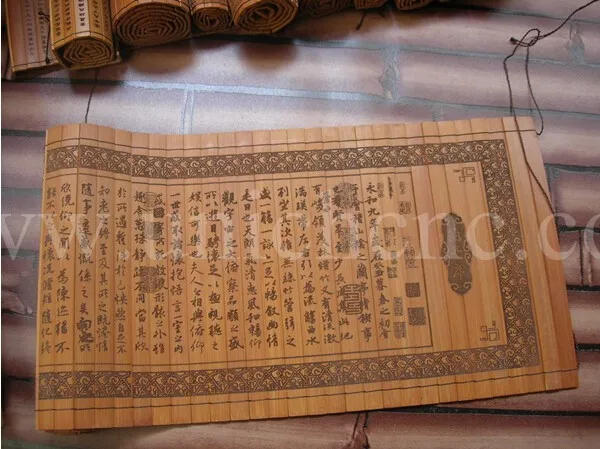 永和九年歲在癸丑暮春之初會
于會稽山陰之蘭亭脩禊事
也群賢畢至少長咸集此地
有崇山峻領茂林脩竹又有清流激
湍暎帶左右引以為流觴曲水
列坐其次雖無絲竹管弦之
盛一觴一詠亦足以暢敘幽情
是日也天朗氣清惠風和暢仰
觀宇宙之大俯察品類之盛
所以遊目騁懷足以極視聽之
娛信可樂也夫人之相與俯仰
一世或取諸懷抱悟言一室之內
或因寄所託放浪形骸之外雖
趣舍萬殊靜躁不同當其欣
於所遇蹔得於己快然自足不
知老之將至及其所之既惓情
隨事遷感慨係之矣向之所
欣俛仰之閒以為陳迹猶不
能不以之興懷況脩短隨化終